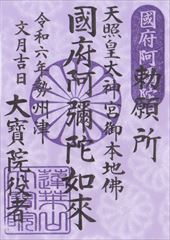 國府阿彌陀
勅願所
天照皇太神宮御本地佛
國府阿彌陀如來
令和六年勢州津
文月吉日
大寶院役者